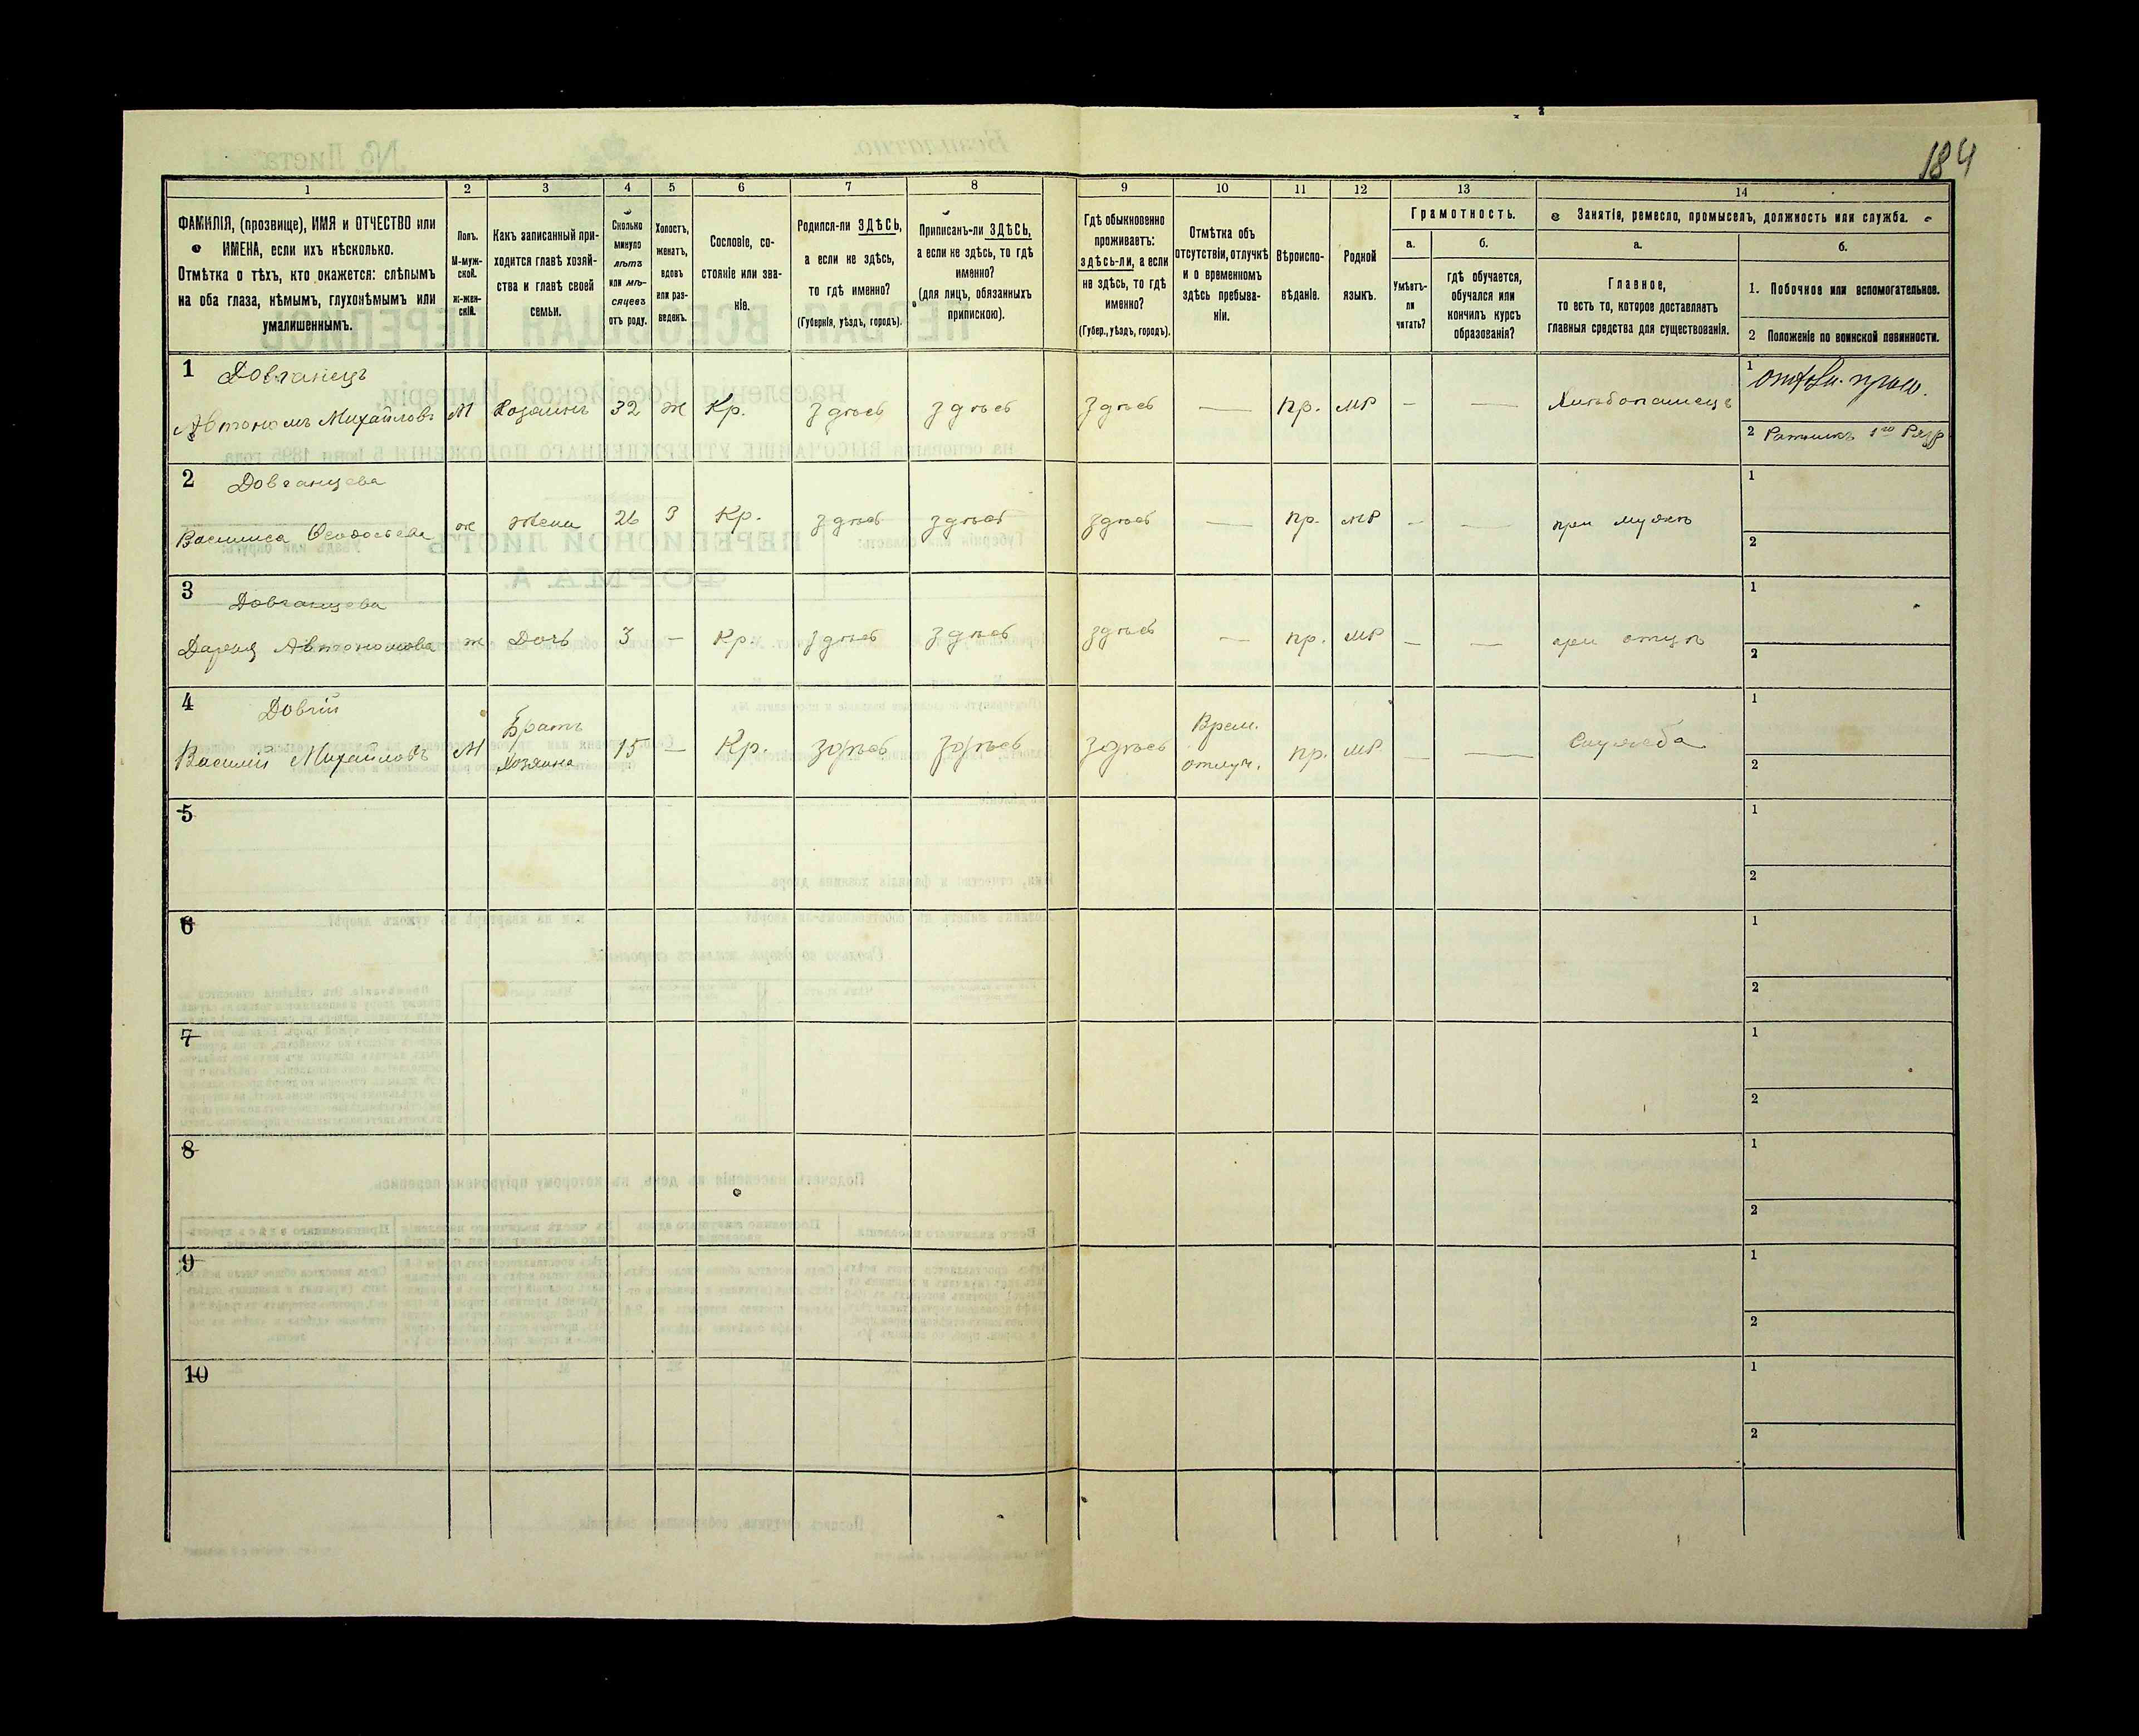 184
1 2 3 4 5 6 7 8 9 10 11 12 13 14
ФАМИЛІЯ, (прозвище), ИМЯ и ОТЧЕСТВО или
ИМЕНА, если ихъ нѣсколько.
Отмѣтка о тѣхъ, кто окажется: слѣпымъ
на оба глаза, нѣмымъ, глухонѣмымъ или
умалишеннымъ.
Полъ.
М-муж-
ской.
Ж-жен-
скій.
Какъ записанный при-
ходится главѣ хозяй-
ства и главѣ своей
семьи.
Сколько
минуло
лѣтъ
или мѣ-
сяцевъ
отъ роду.
Холостъ,
женатъ,
вдовъ
или раз-
веденъ.
Сословіе, со-
стояніе или зва-
ніе.
Родился-ли ЗДѢСЬ,
а если не здѣсь,
то гдѣ именно?
(Губернія, уѣздъ, городъ).
Приписанъ-ли ЗДѢСЬ,
а если не здѣсь, то гдѣ
именно?
(для лицъ, обязанныхъ
припискою).
Гдѣ обыкновенно
проживаетъ:
здѣсь-ли, а если
не здѣсь, то гдѣ
именно?
(Губер., уѣздъ, городъ).
Отмѣтка объ
отсутствіи, отлучкѣ
и о временномъ
здѣсь пребыва-
ніи.
Вѣроиспо-
вѣданіе.
Родной
языкъ.
Грамотность.
а.
Умѣетъ-
ли
читать?
б.
гдѣ обучается,
обучался или
кончилъ курсъ
образованія?
Занятіе, ремесло, промыселъ, должность или служба.
а.
Главное,
то есть то, которое доставляетъ
главныя средства для существованія.
б.
1. Побочное или вспомогательное.
2 Положеніе по воинской повинности.
1 Довганецъ
Автономъ Михайловъ М Хозяинъ 32 ж Кр. здѣсь здѣсь здѣсь — пр. МР — — Хлѣбопашецъ
1
2 Ратникъ 1го Разр
2 Довганцева
Василиса Ѳеодосьева ж Жена 26 З Кр. здѣсь здѣсь здѣсь — пр. МР — — при мужѣ
1
2
3 Довганцева
Дарья Автономова ж Дочь 3 — Кр. здѣсь здѣсь здѣсь — пр. МР — — при отцѣ
1
2
4 Довгій
Василій Михайловъ М Братъ
Хозяина 15 — Кр. здѣсь здѣсь здѣсь Врем.
отлуч. пр. МР — — Служба
1
2
5
1
2
6
1
2
7
1
2
8
1
2
9
1
2
10
1
2